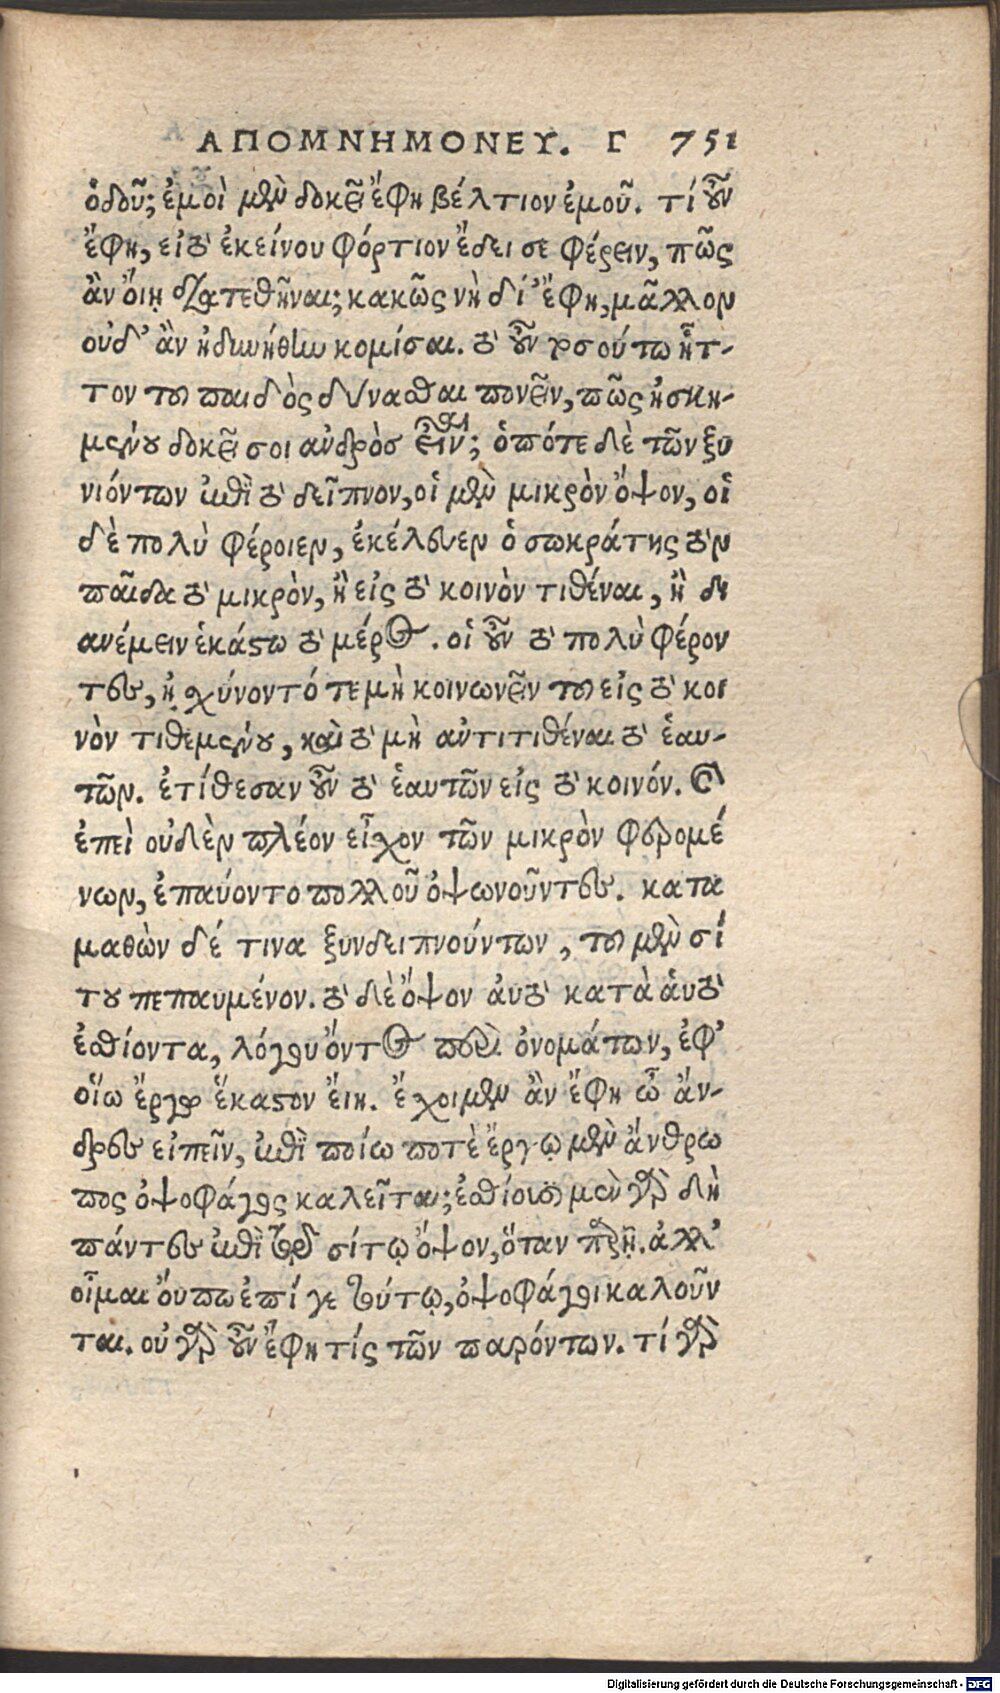 ΑΠΟΜΝΗΜΟΝΕΥ. Γ 751
ὁδοῦ; ἐμοὶ μὲν δοκεῖ ἔφη βέλτιον ἐμοῦ. τί οὖν
ἔφη, εἰ τὸ ἐκείνου φόρτιον ἔδει σε φέρειν, πῶς
ἂν ὄιη διατεθῆναι; κακῶς νὴ δί’ ἔφη, μᾶλλον
οὐδ’ ἂν ἠδυνήθην κομίσαι. τὸ οὖν τοσούτω ἧτ-
τον τοῦ παιδὸς δύνασθαι πονεῖν, πῶς ἠσκη-
μένου δοκεῖ σοι ἀνδρὸς εἶναι; ὁπότε δὲ τῶν ξυ
νιόντων ἐπὶ τὸ δεῖπνον, οἱ μὲν μικρὸν ὄψον, οἱ
δὲ πολὺ φέροιεν, ἐκέλευεν ὁ σωκράτης τὸν
παῖδα τὸ μικρὸν, ἢ εἰς τὸ κοινὸν τιθέναι, ἢ δι
ανέμειν ἑκάστω τὸ μέρος. οἱ οὖν τὸ πολὺ φέρον
τες, ᾐσχύνοντό τε μὴ κοινωνεῖν τοῦ εἰς τὸ κοι
νὸν τιθεμένου, καὶ τὸ μὴ ἀντιτιθέναι τὸ ἑαυ-
τῶν. ἐτίθεσαν οὖν τὸ ἑαυτῶν εἰς τὸ κοινόν. καὶ
ἐπεὶ οὐδὲν πλέον εἶχον τῶν μικρὸν φερομέ
νων, ἐπαύοντο πολλοῦ ὀψωνοῦντες. κατα
μαθὼν δέ τινα ξυνδειπνούντων, τοῦ μὲν σί
του πεπαυμένον. τὸ δὲ ὄψον ἀυτὸ κατὰ ἁυτὸ
ἐσθίοντα, λόγου ὄντος περὶ ὀνομάτων, ἐφ’
οἵω ἔργω ἕκαστον ἔιη. ἔχοιμεν ἂν ἔφη ὦ ἄν-
δρες εἰπεῖν, ἐπὶ ποίω ποτὲ ἔργῳ μὲν ἄνθρω
πος ὀψοφάγος καλεῖται; ἐσθίουσι μὲν γὰρ δὴ
πάντες ἐπὶ τῷ σίτῳ ὄψον, ὅταν παρῇ. ἀλλ’
οἶμαι ὄυπω ἐπί γε τούτῳ, ὀψοφάγοι καλοῦν
ται. οὐ γὰρ οὖν ἔφη τίς τῶν παρόντων. τί γὰρ
Digitalisierung gefördert durch die Deutsche Forschungsgemeinschaft - DFG